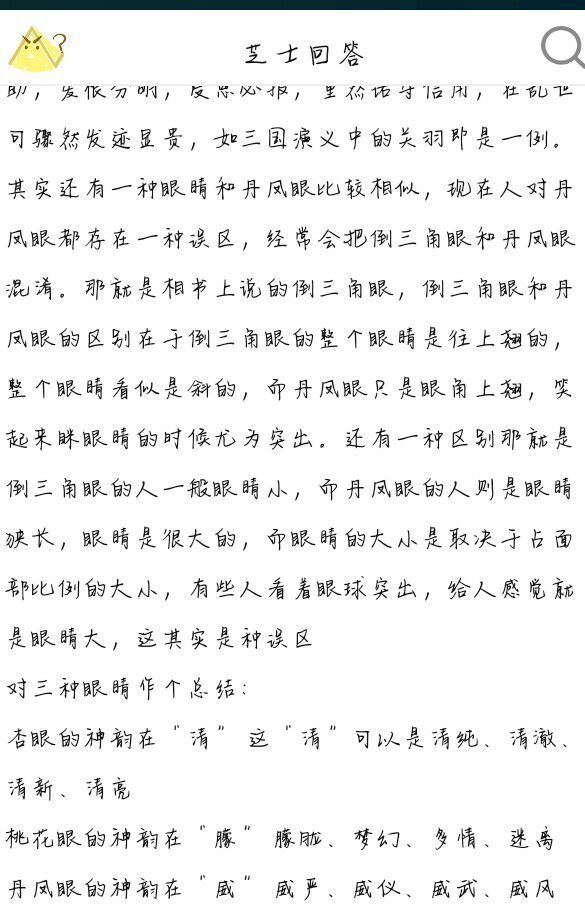 芝士回答
助，爱恨分明，度恩必报，重然诺守信用，在乱世
可骤然发迹显贵，如三国演义中的关羽即是一例。
其实还有一种眼睛和丹凤眼比较相似，现在人对丹
凤眼都存在一种误区，经常会把倒三角眼和丹凤眼
混淆。那就是相书上说的倒三角眼，倒三角眼和丹
凤眼的区别在于倒三角眼的整个眼睛是往上翘的，
整个眼睛看似是斜的，而丹凤眼只是眼角上翘，笑
起来眯眼睛的时候尤为突出。还有一种区别那就是
倒三角眼的人一般眼睛小，而丹凤眼的人则是眼睛
狭长，眼睛是很大的，而眼睛的大小是取决于占面
部比例的大小，有些人看着眼球突出，给人感觉就
是眼睛大，这其实是种误区
对三种眼睛作个总结：
杏眼的神韵在“清”这“清”可以是清纯、清澈、
清新、清亮
桃花眼的神韵在“朦”朦胧、梦幻、多情、迷离
丹凤眼的神韵在“威”威严、威仪、威武、威风